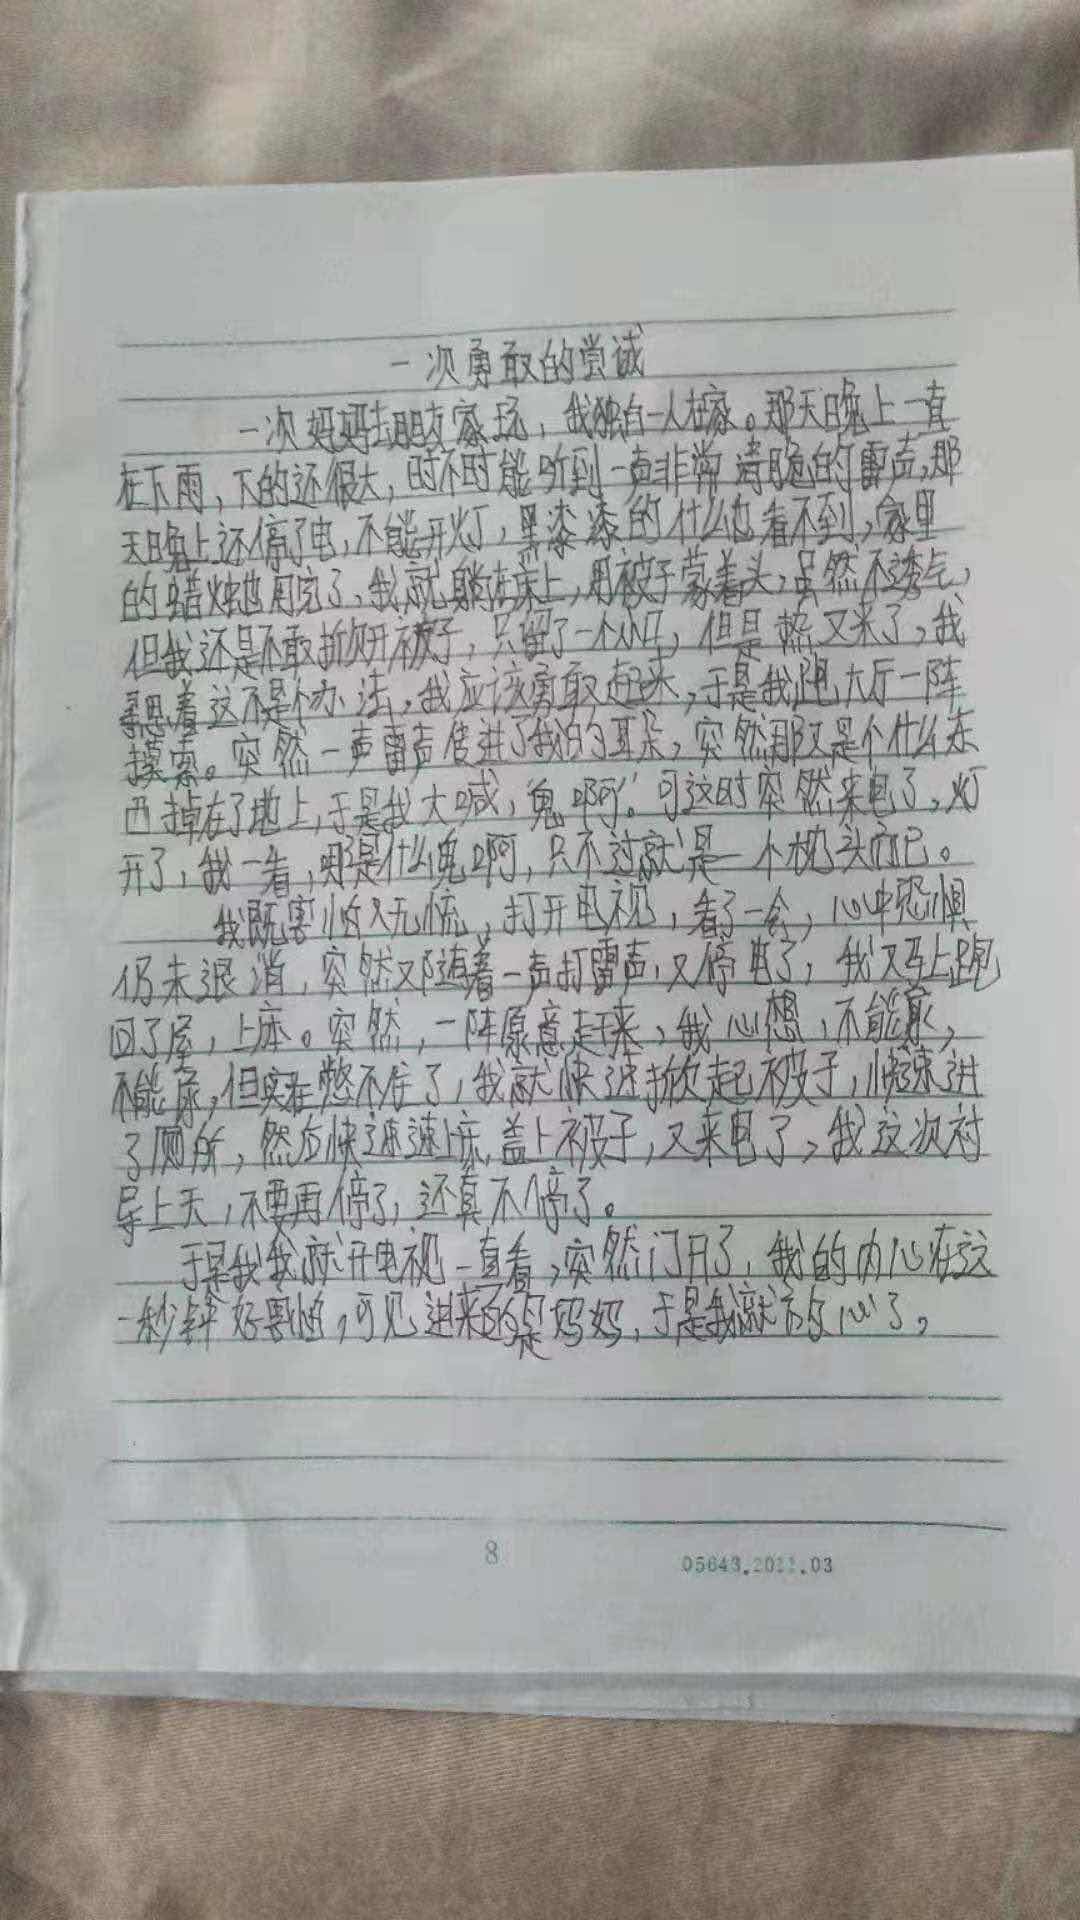 一次勇敢的尝试
一次妈妈去朋友家玩，我独自一人在家。那天晚上一直
在下雨，下的还很大，时不时能听到一声非常清脆的雷声，那
天晚上还停了电，不能开灯，黑漆漆的什么也看不到，家里
的蜡烛也用完了，我就躺在床上，用被子蒙着头，虽然不透气，
但我还是不敢掀开被子，只留了一个小口，但是热又来了，我
寻思着这不是个办法，我应该勇敢起来，于是我跑大厅一阵
摸索。突然一声雷声传进了我的耳朵，突然那又是个什么东
西掉在了地上，于是我大喊，“鬼啊”。可这时突然来电了，灯
开了，我一看，那是什么鬼啊，只不过就是一个枕头而已。
我既害怕又无慌，打开电视，看了一会，心中恐惧
仍未退消，突然又随着一声打雷声，又停电了，我又马上跑
回了屋，上床。突然，一阵尿意走来，我心想，不能尿，
不能尿，但实在憋不住了，我就快速掀起被子，快速进
了厕所，然后快速速上床，盖上被子，又来电了，我这次对
导上天，不要再停了，还真不停了。
于是我我就开电视一直看，突然门开了，我的内心在这
一秒钟好害怕，可见进来的是妈妈，于是我就放心了，
8
05643.2021.03